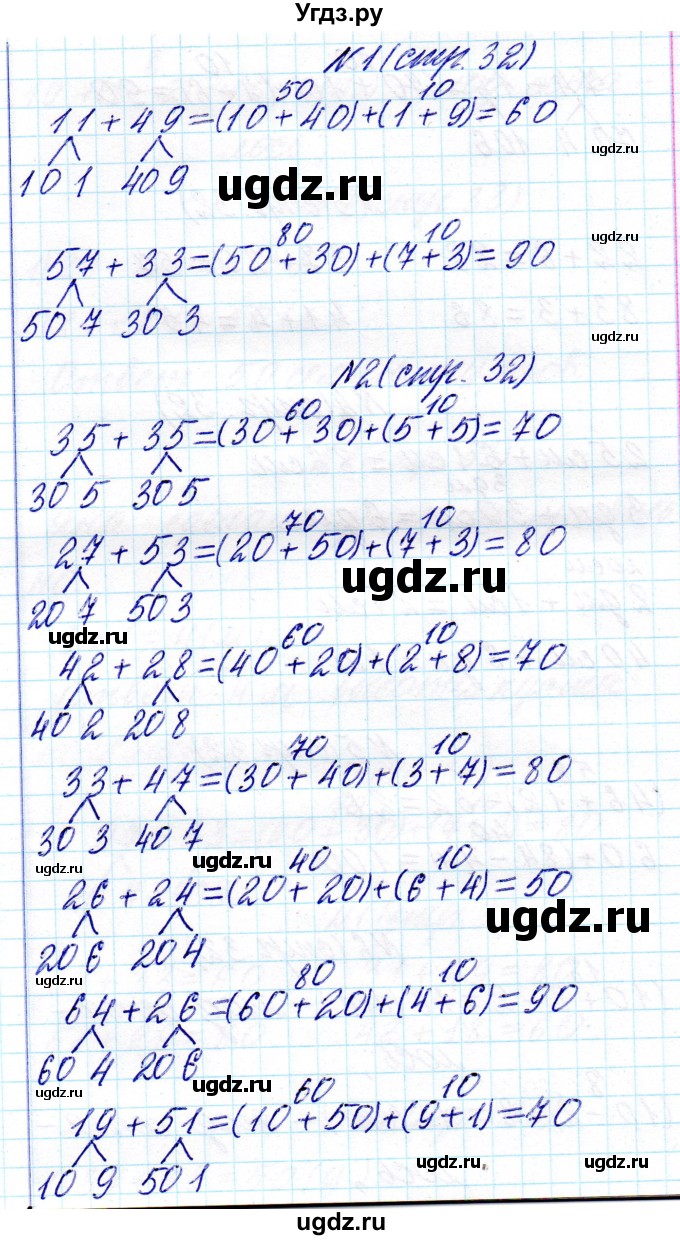 Угдз.ру
N1 (стр. 32)
50 10
11 + 49 = (10 + 40) + (1 + 9) = 60
ugdz.ru
10 1 40 9
ugdz.ru
ugdz.ru
80 10
ugdz.ru
57 + 33 = (50 + 30) + (7 + 3) = 90
50 7 30 3
ugdz.ru
N2 (стр. 32)
ugdz.ru
60 10
35 + 35 = (30 + 30) + (5 + 5) = 70
30 5 30 5
70 10
27 + 53 = (20 + 50) + (7 + 3) = 80
ugdz.ru
20 7 50 3
ugdz.ru
60 10
42 + 28 = (40 + 20) + (2 + 8) = 70
40 2 20 8
70 10
33 + 47 = (30 + 40) + (3 + 7) = 80
30 3 40 7
ugdz.ru
ugdz.ru
40 10
26 + 24 = (20 + 20) + (6 + 4) = 50
ugdz.ru
20 6 20 4
80 10
64 + 26 = (60 + 20) + (4 + 6) = 90
60 4 20 6
ugdz.ru
ugdz.ru
60 10
19 + 51 = (10 + 50) + (9 + 1) = 70
ugdz.ru
ugdz.ru
10 9 50 1
ugdz.ru